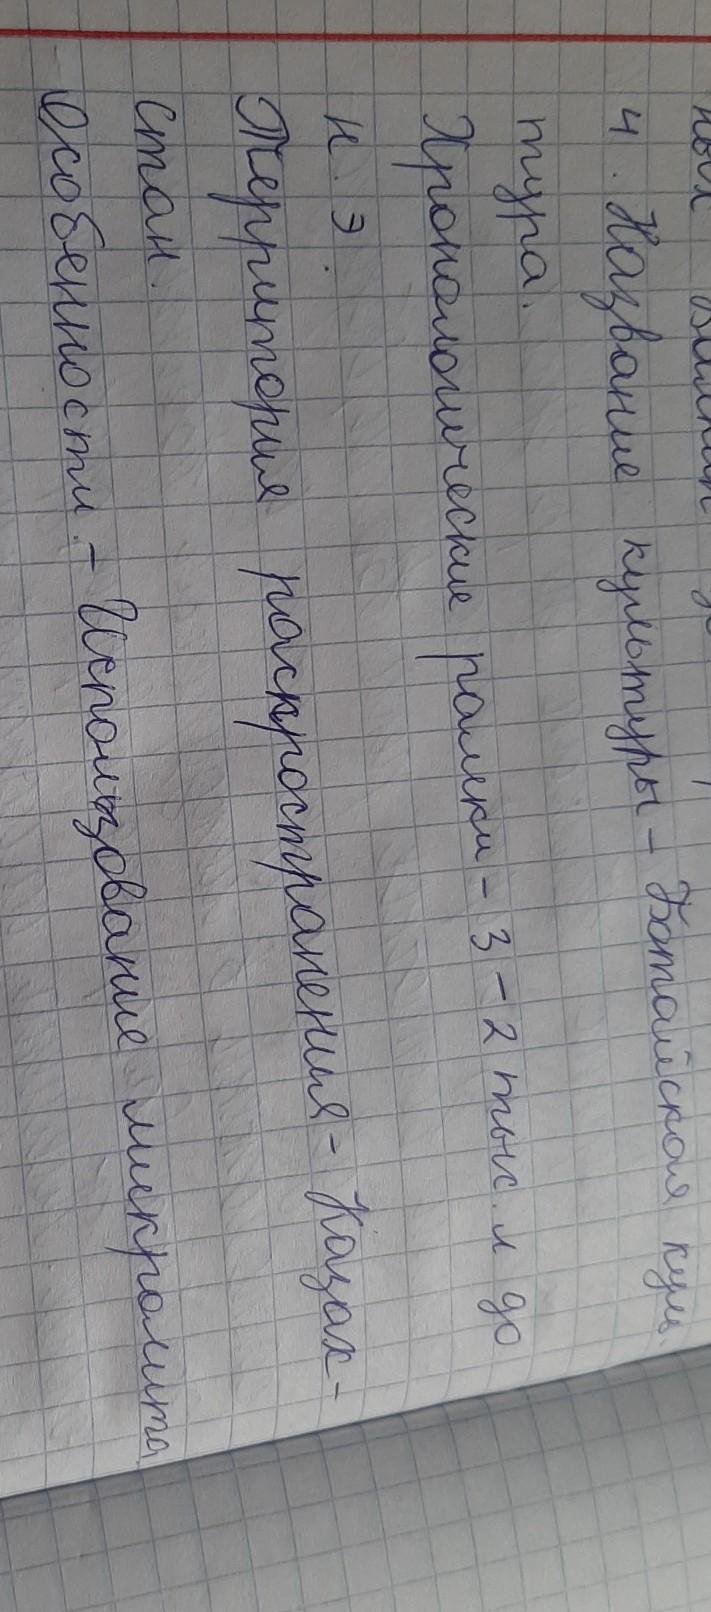 4. Название культуры - Ботайская куль.
тура.
Хронологические рамки - 3 - 2 тыс. л до
н. э.
Территория распространения - Казах-
стан.
Особенности. - Использование микролита